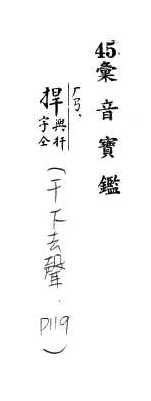 45彙音寶鑑
捍ㄏㄢˋ
與扞
字仝
(干下去聲.P119)